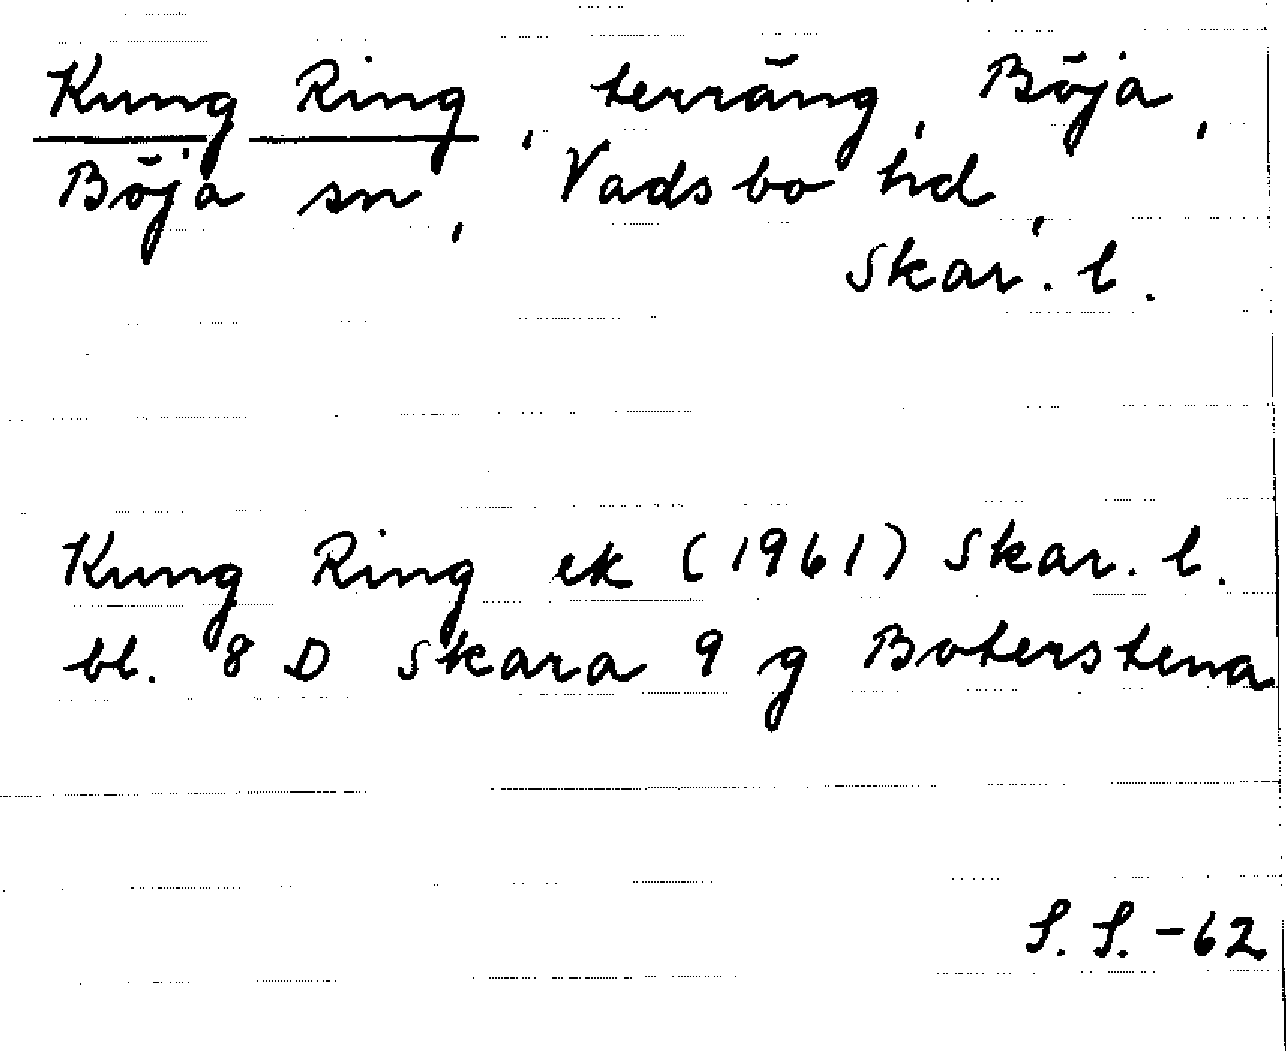 Kung Ring, terräng, Böja,
Böja sn, Vadsbo hd,
Skar. l.
Kung Ring ek (1961) Skar. l.
bl. 8 D Skara 9 g Boterstena
S. S. -62